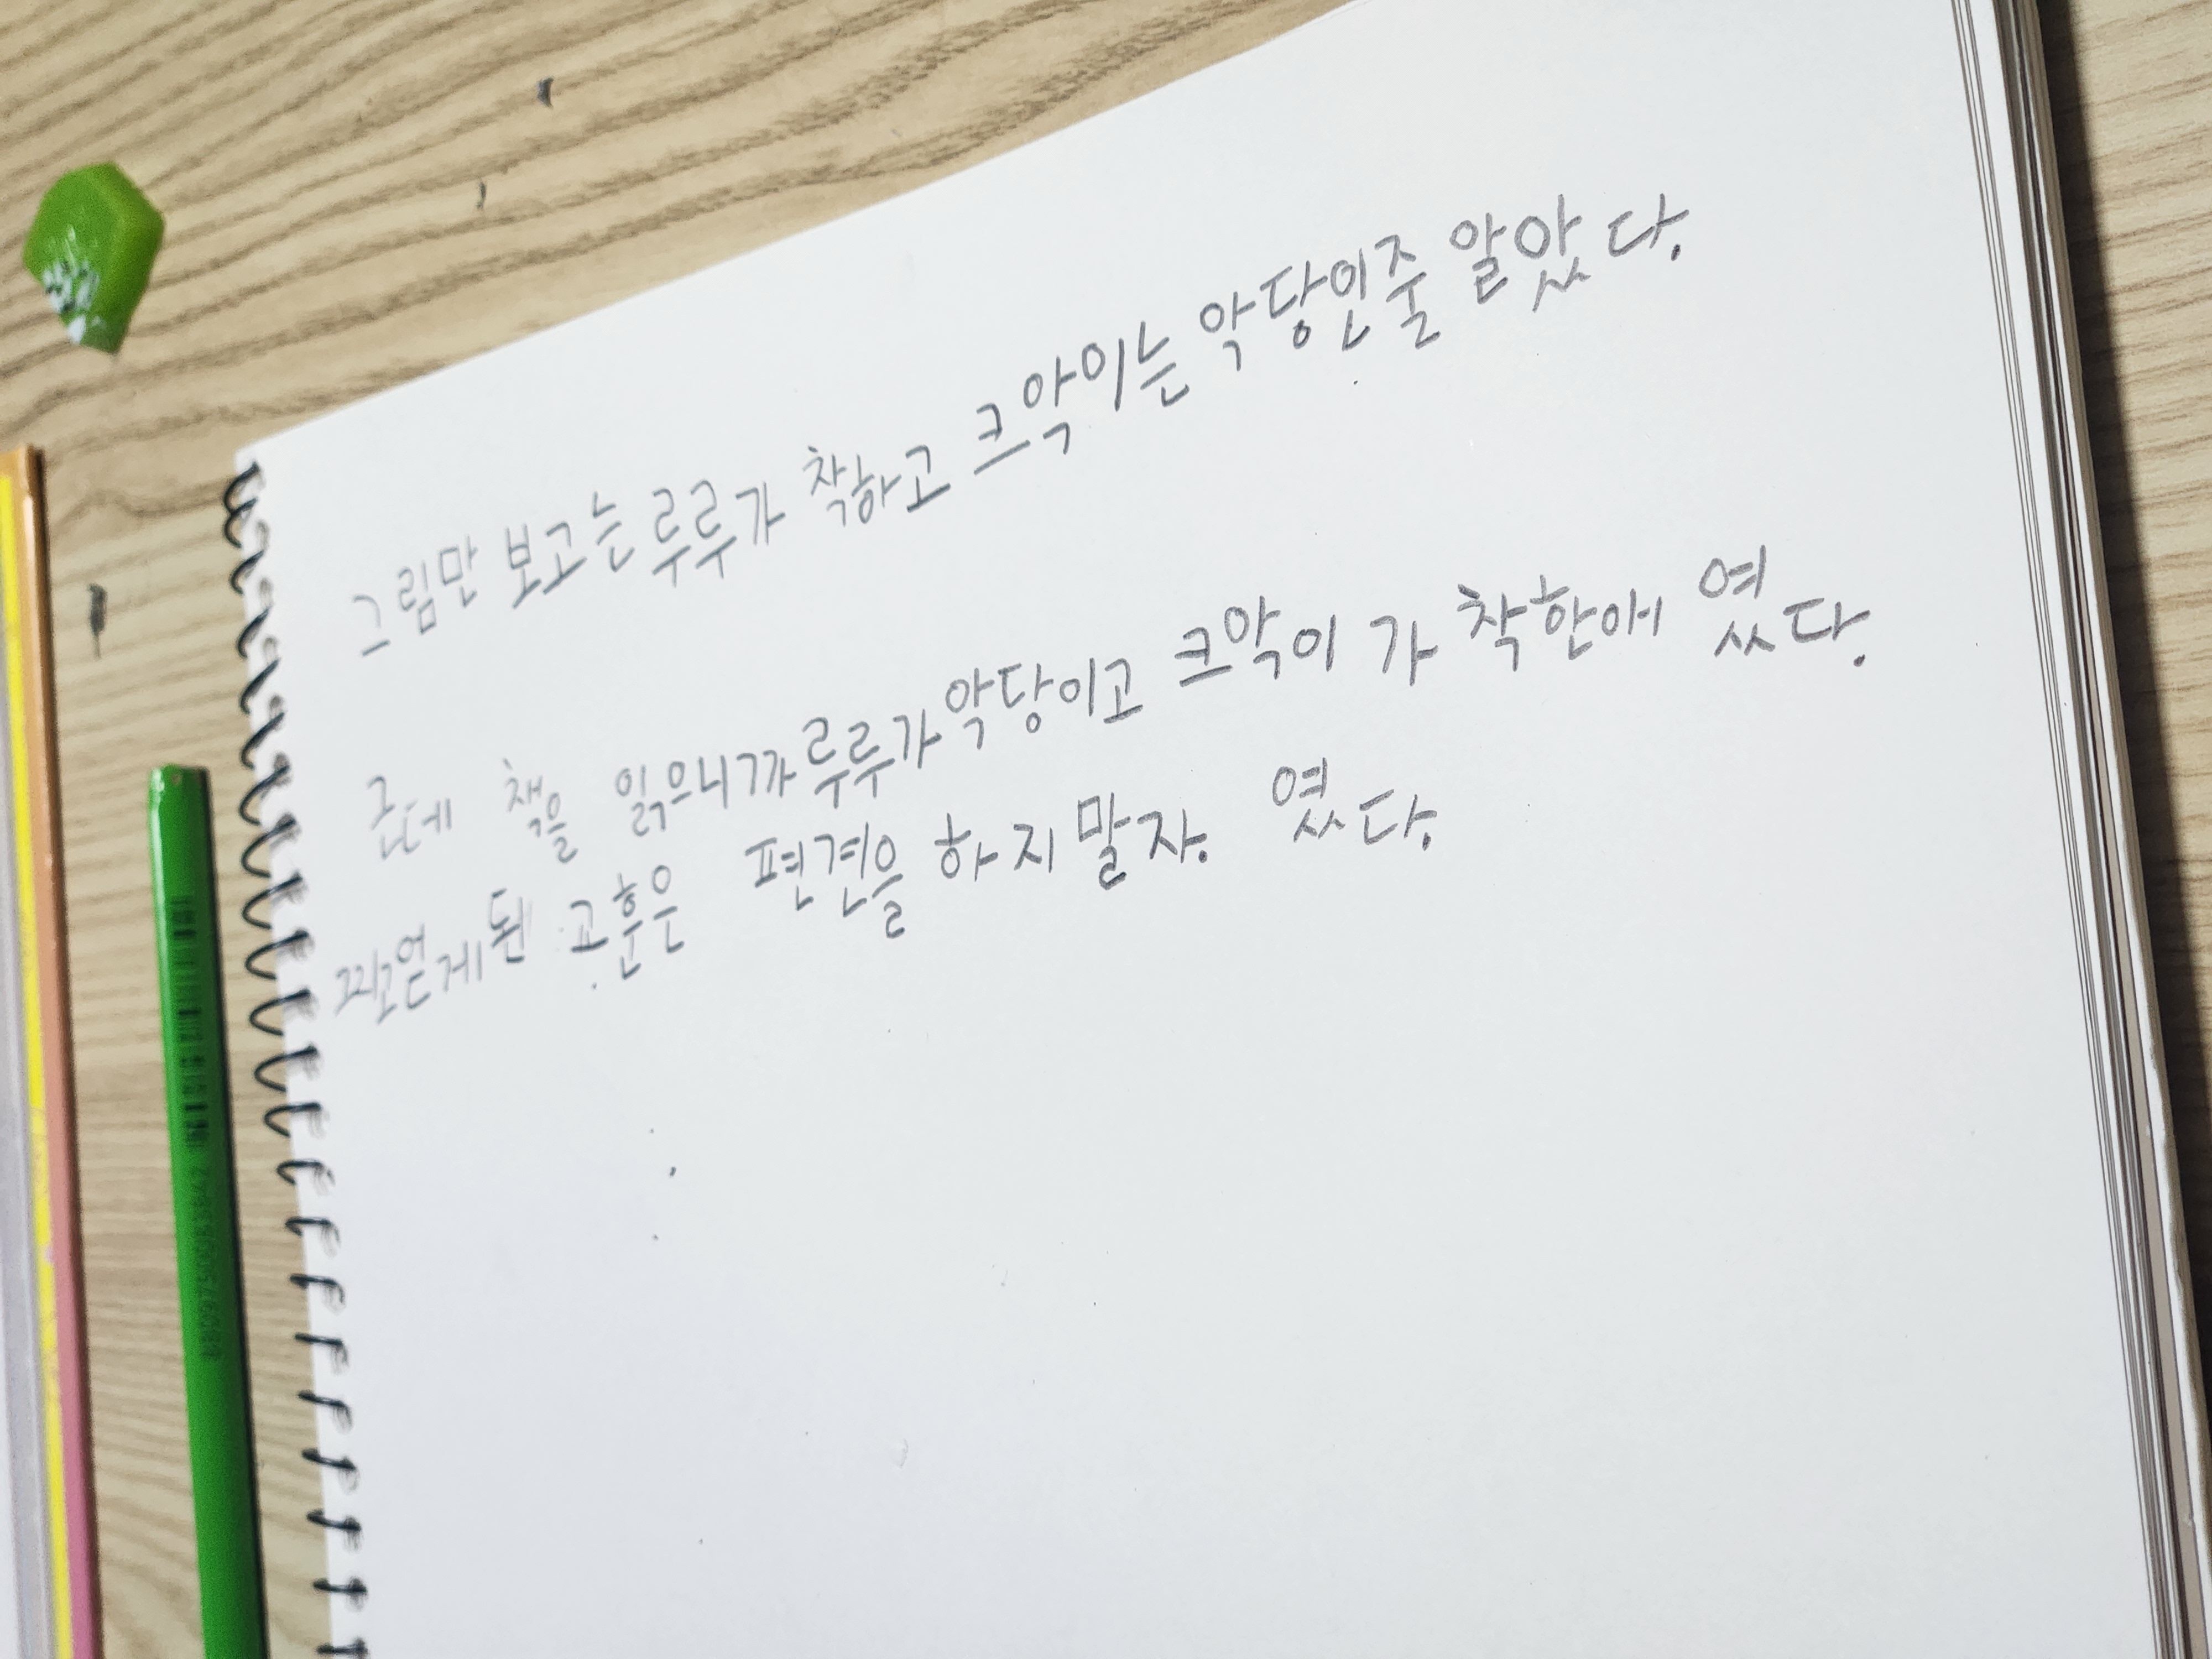 그림만 보고는 루루가 착하고 크악이는 악당인줄 알았다.
근데 책을 읽으니까 루루가 악당이고 크악이 가 착한애 였다.
얻게된 교훈은 편견을 하지말자. 였다.